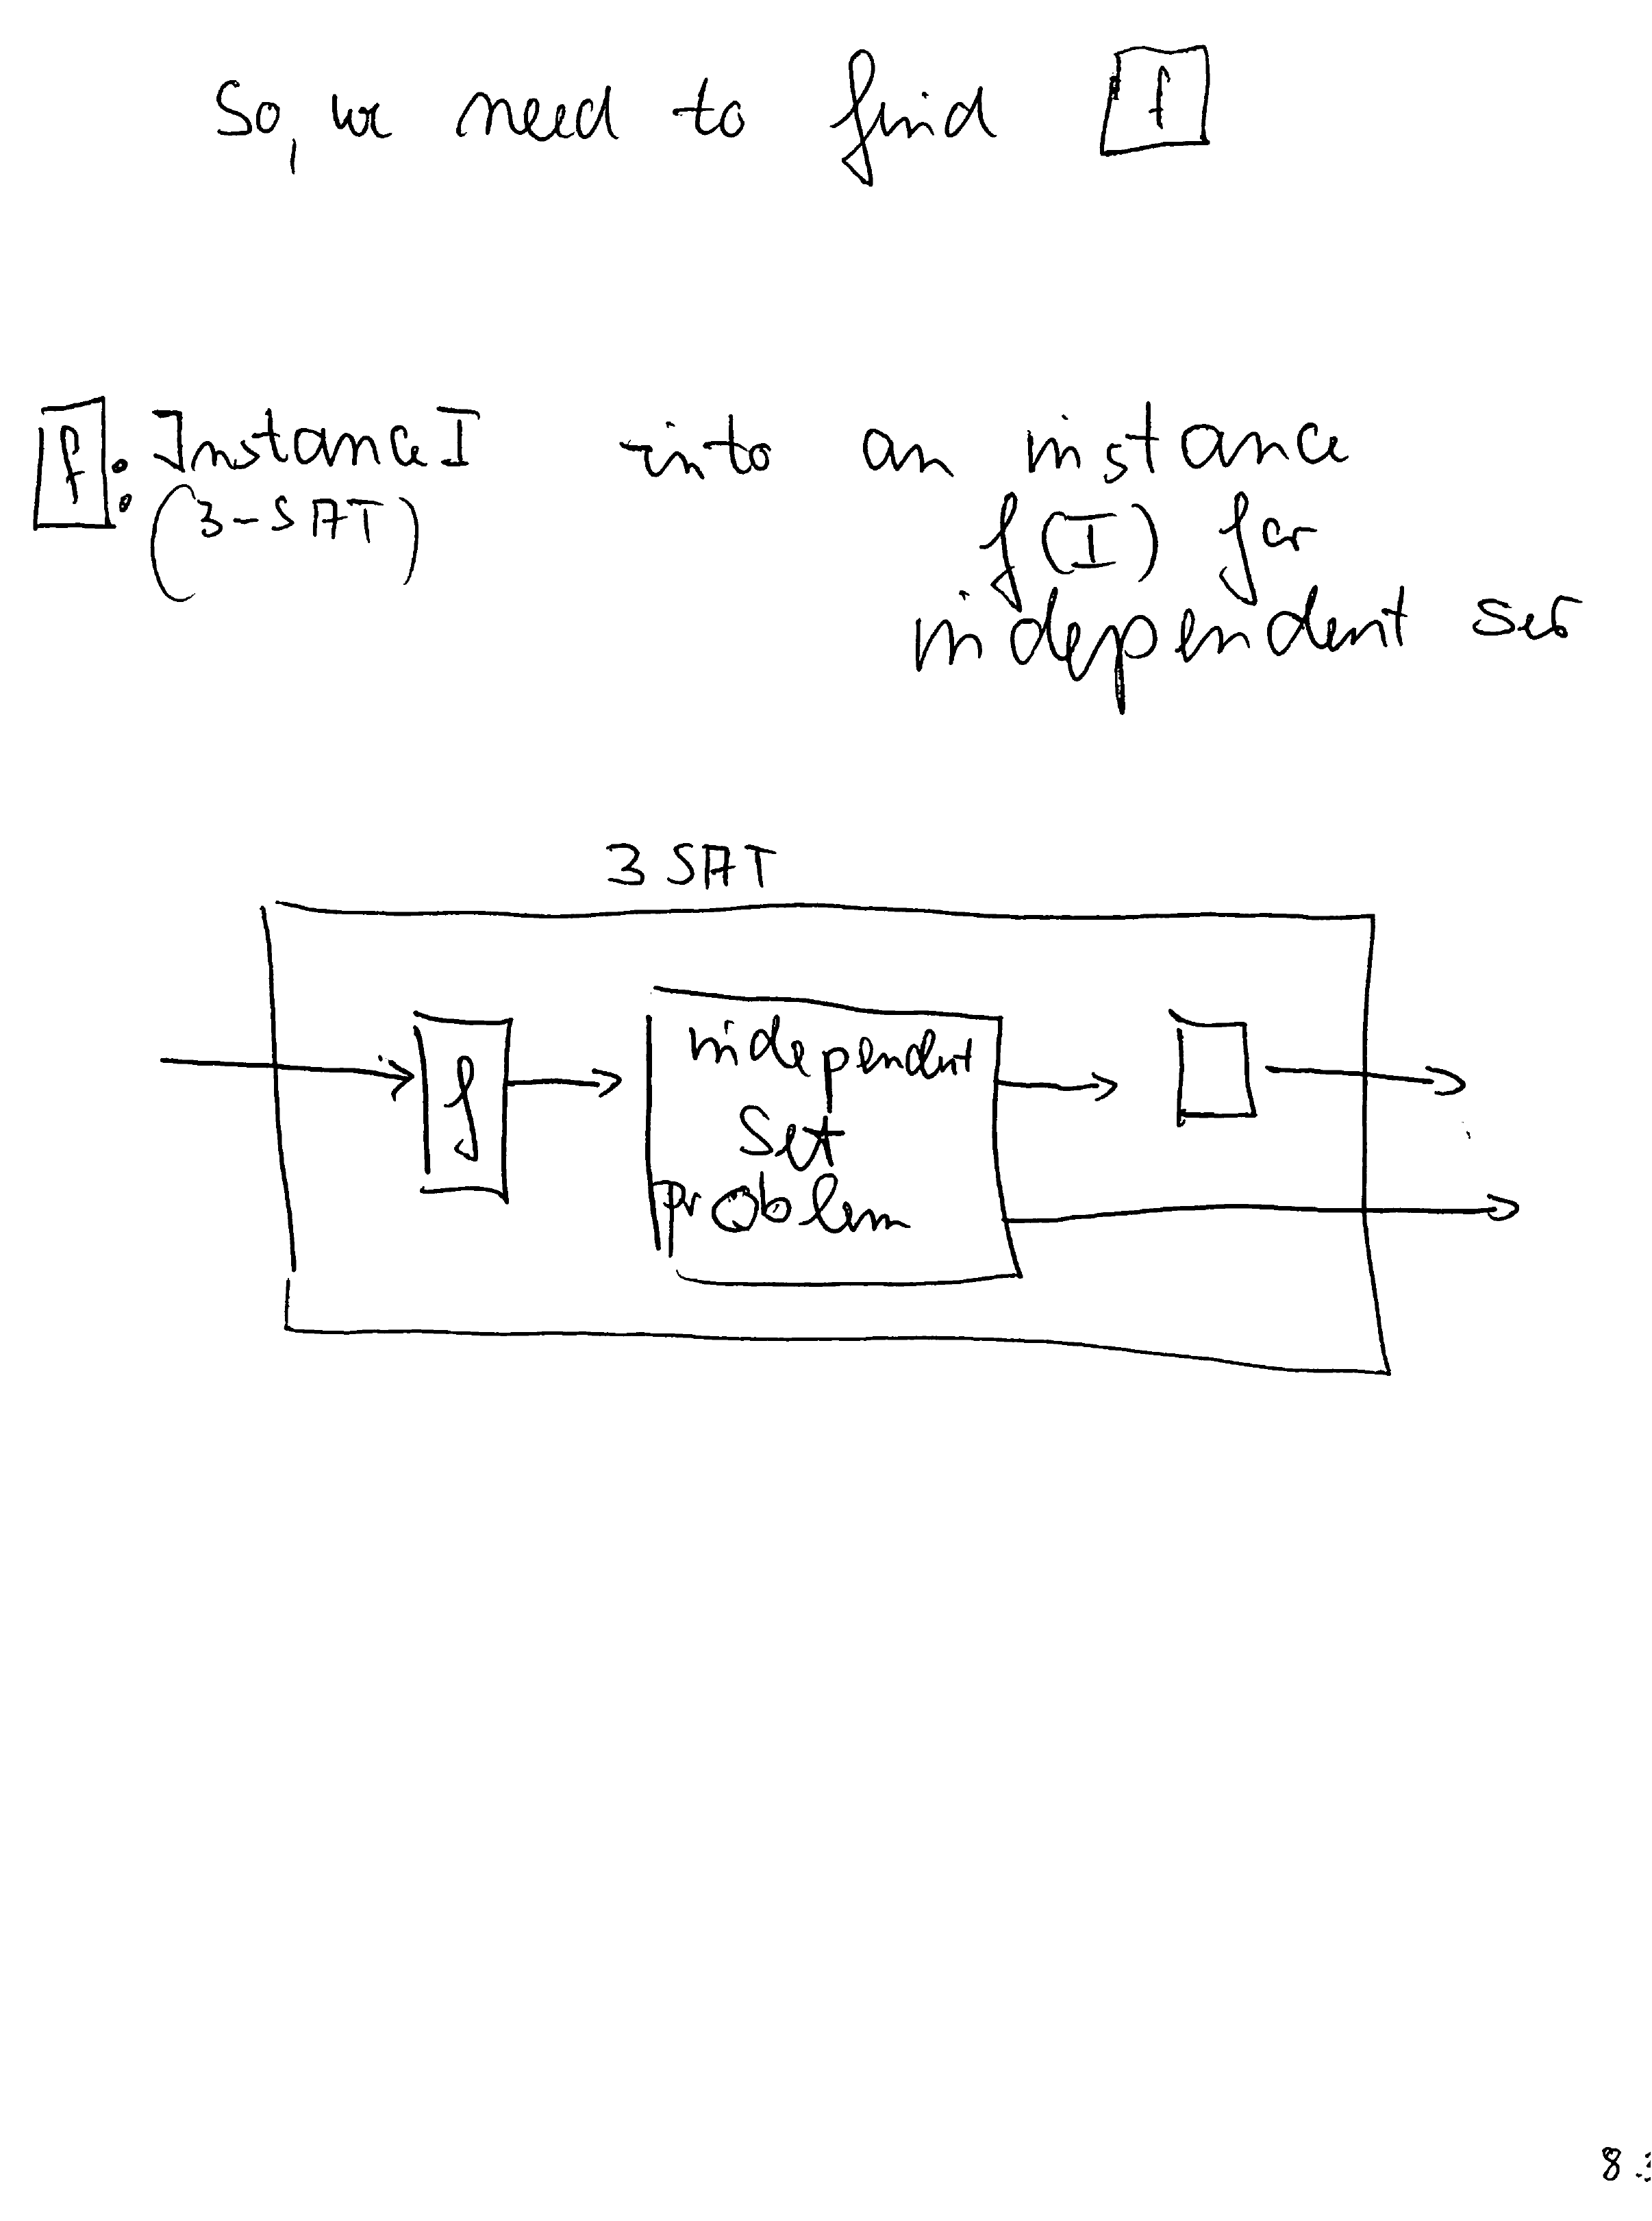 So, we need to find f
f: Instance I into an instance
(3-SAT) f(I) for
independent set
3 SAT
f
independent
Set
problem
8.3